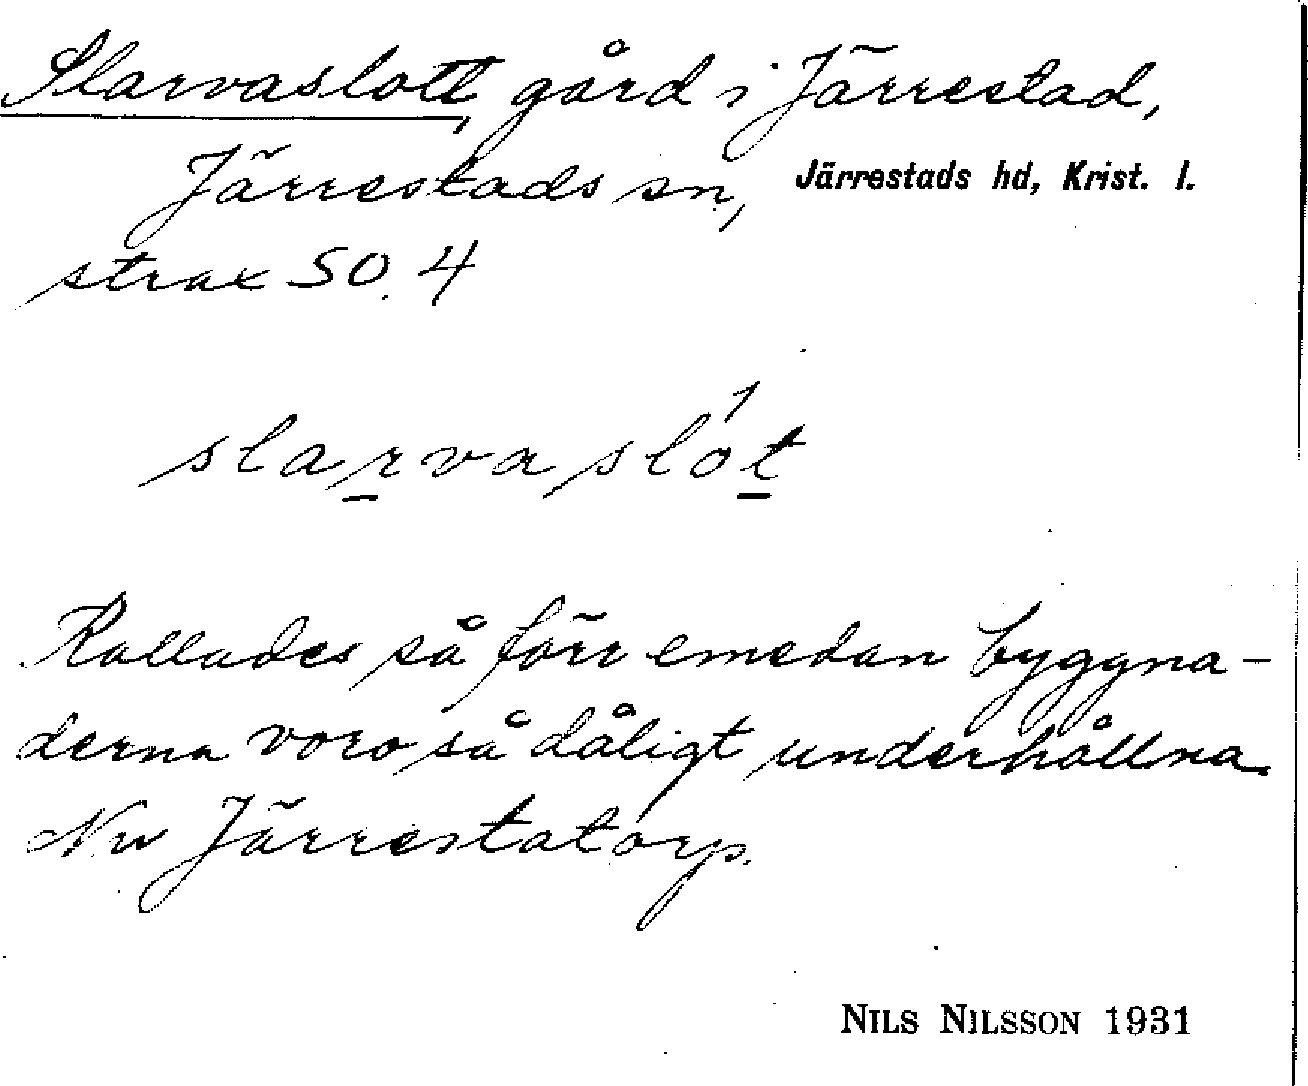 Slarvaslott, gård i Järrestad,
Järrestads sn, Järrestads hd, Krist. l.
strax SO. 4
slarvaslót
Kallades så förr emedan byggna-
derna voro så dåligt underhållna.
Nu Järrestatorp.
NILS NILSSON 1931